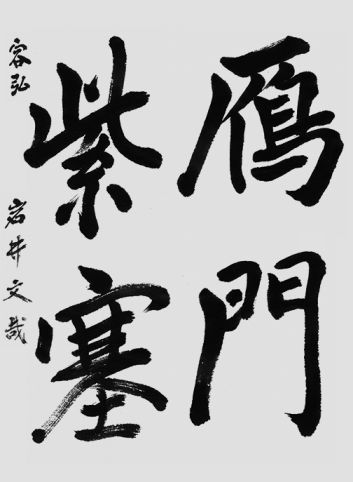 鴈門
紫塞
容弘 岩井文哉